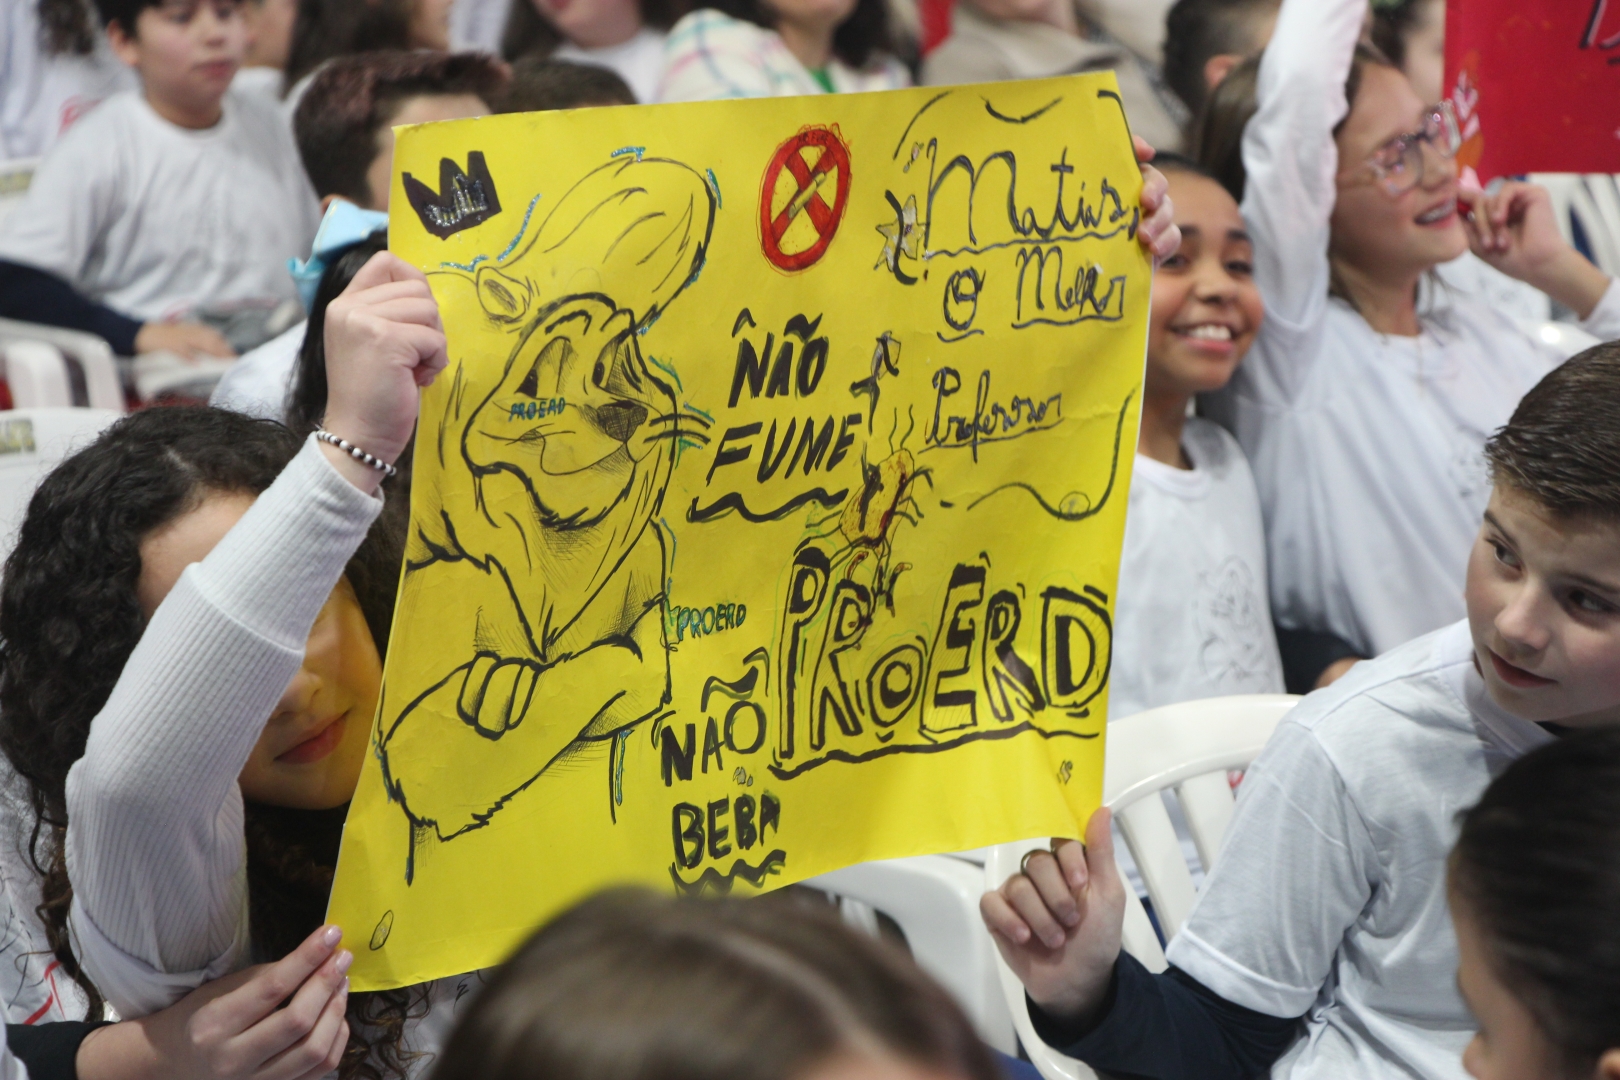 Matias,
O Melhor
Professor
NÃO
FUME
PROERD
PROERD
PROERD
NÃO
BEBA